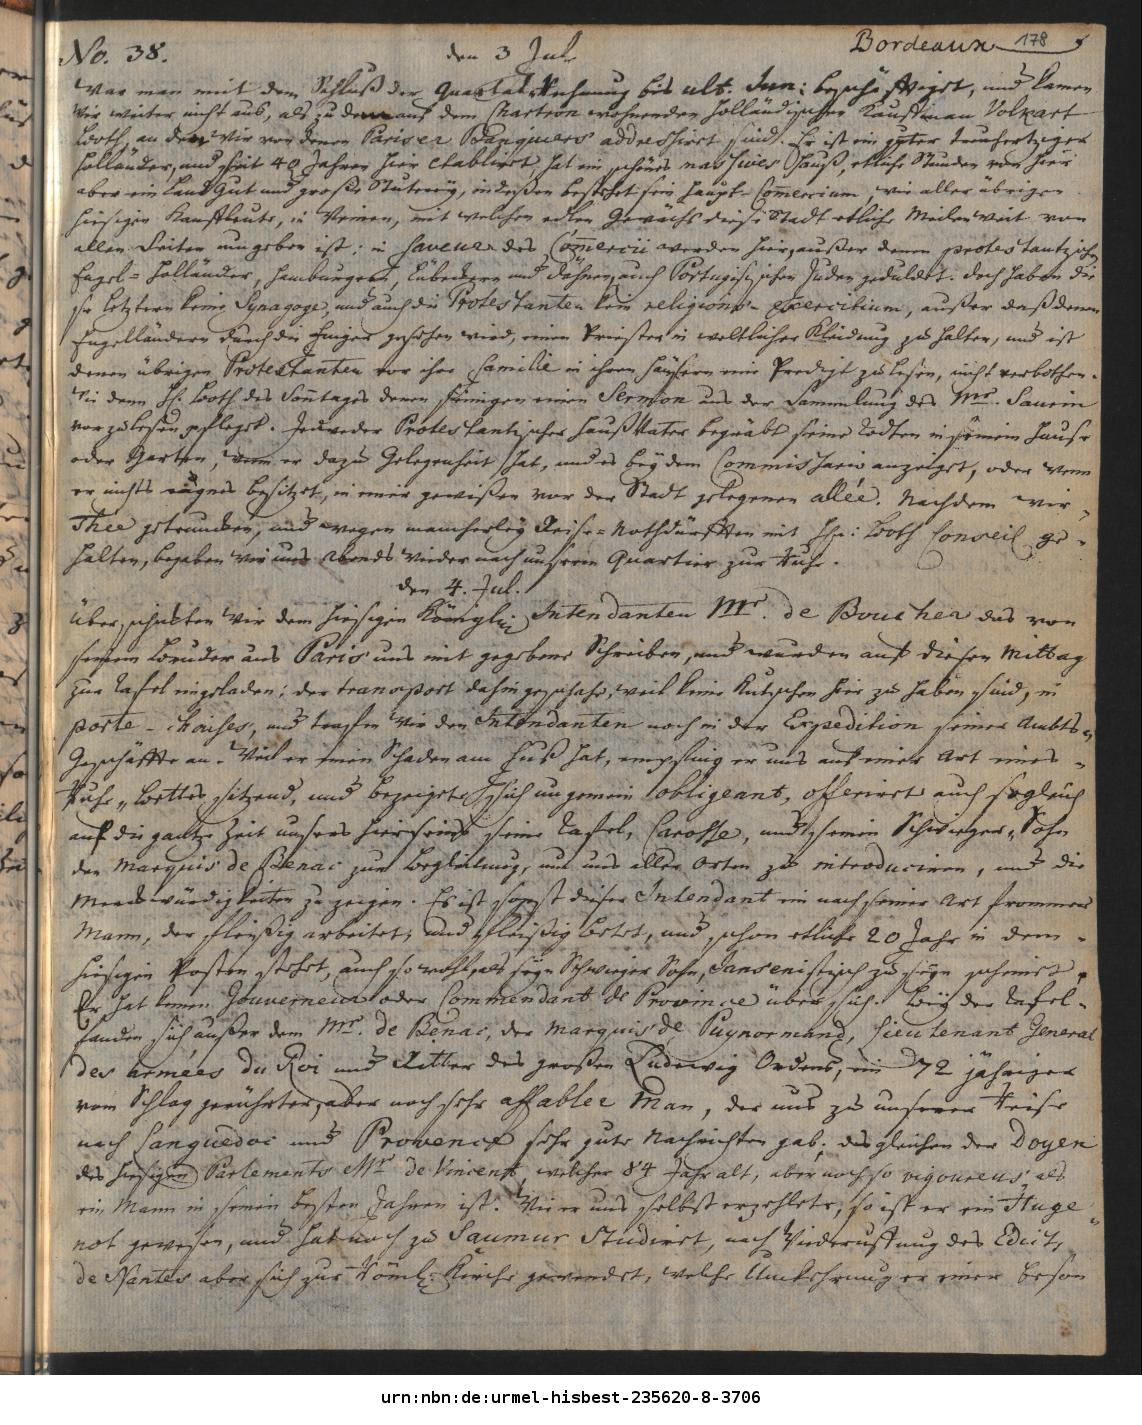 No. 38. den 3 Jul. Bordeaux 178
War man mit dem Schluß der Quartal-Rechnung bis ult. Jun: beschäfftiget, und kamen
wir weiter nicht aus, als zu dem auf dem Chartron wohnenden Holländischen Kauffman Volkart
Booth, an den wir von denen Pariser Banquiers addreshirt sind. Er ist ein guter treuhertziger
Holländer, und seit 40 Jahren hier etablirt, hat ein schönes massives Hauß, etliche Stunden von hier
aber ein Land Gut und große Stuterey, indeßen bestehet sein Haupt-Commercium, wie aller übrigen
hiesigen Kauffleute, in Weinen, mit welchen edlen Gewächs diese Stadt etliche Meilen weit von
allen Seiten umgeben ist: in faveur des Commercii werden hier, außer denen protestantischen
Engel- Holländer, Hamburgern, Lübeckern und Dähnen, auch Portugisischen Juden geduldet. doch haben die
se letztern keine Synagoge, und auch die Protestanten kein religions-Exercitium, außer daß denen
Engelländern durch die Finger gesehen wird, einen Priester in weltlicher Kleidung zu halten, und ist
denen übrigen Protestanten vor ihre Familie in ihren Häusern eine Predigt zu lesen, nicht verbothen.
Wie denn H. Booth des Sontages denen seinigen einen Sermon aus der Sammlung des Mr. Saurin
vorzulesen pfleget. Jedweder Protestantischer Hauß Vater begräbt seine Todten in seinem Hause
oder Garten, wenn er dazu Gelegenheit hat, und es bey dem Commissario anzeiget, oder wenn
er nichts eignes besitzet, in einer gewißen vor der Stadt gelegenen allée. Nachdem wir
Thee getruncken, und wegen mancherley Reise-Nothdürfften mit H: Booth Conseil ge-
halten, begaben wir uns abends wieder nach unserm Quartier zur Ruhe.
den 4. Jul.
Überschickten wir dem hiesigen Königln Intendanten Mr. de Boucher das von
seinem Bruder aus Paris uns mit gegebene Schreiben, und wurden auf diesen Mittag
zur Tafel eingeladen: der transport dahin geschahe, weil keine Kutschen hier zu haben sind, in
porte-chaises, und trafen wir den Intendanten noch in der Expedition seiner Ambts-
Geschäffte an. Weil er einen Schaden am Fuß hat, empfing er uns auf einer Art eines
Ruhe-Bettes sitzend, und bezeigte sich ungemein obligeant, offerirt auch sogleich
auf die gantze Zeit unsers Hierseins seine Tafel, Carosse, und seinen Schwieger-Sohn
den Marquis de Benac zur Begleitung, um uns aller Orten zu introduciren, und die
Merckwürdigkeiten zu zeigen. Es ist sonst dieser Intendant ein nach seiner Art frommer
Mann, der fleißig arbeitet, und fleißig betet, und schon etliche 20 Jahr in dem
hiesigen Posten stehet, auch sowohl, als seyn Schwieger Sohn, Jansenistisch zu seyn scheinet.
Er hat keinen Gouverneur oder Commendant de Province über sich. Bey der Tafel
fanden sich, außer dem Mr. de Benac, der Marquis de Puynormand, Lieutenant General
des armées du Roi und Ritter des großen Ludewig Ordens, ein 72 jähriger
vom Schlag gerührter, aber noch sehr affabler Man, der uns zu unserer Reise
nach Languedoc und Provence sehr gute Nachrichten gab; desgleichen der Doyen
des hiesigen Parlements Mr de Vincent, welcher 84 Jahr alt, aber noch so vigoureus, als
ein Mann in seinen besten Jahren ist. Wie er uns selbst erzehlete, so ist er ein Huge-
not gewesen, und hat noch zu Saumur Studiret, nach Wiederuffung des Edict
de Nantes aber sich zur Röml. Kirche gewendet, welche Umkehrung er einer beson
urn:nbn:de:urmel-hisbest-235620-8-3706